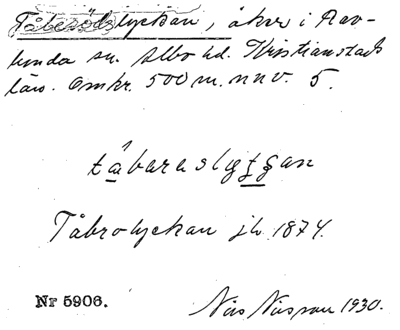 Tåberödslyckan, åker i Rav-
lunda sn. Albo hd. Kristianstads
län. Omkr. 500 m. nnv. 5.
tåbaraslyggan
Tåbrolyckan jb 1874.
Nr 5906.
Nils Nilsson 1930.